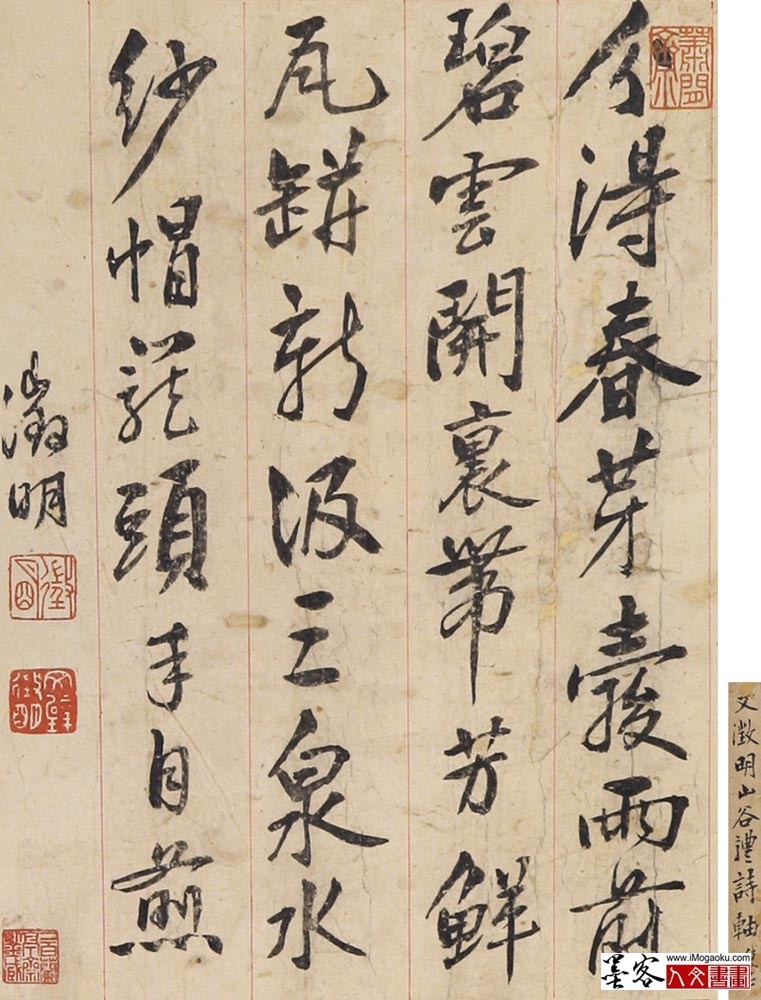 分得春芽穀雨前
碧雲開裏帶芳鮮
瓦缾新汲三泉水
紗帽籠頭手自煎
徵明
文徵明山谷體詩軸
墨客
www.iMogaoku.com
人文書畫